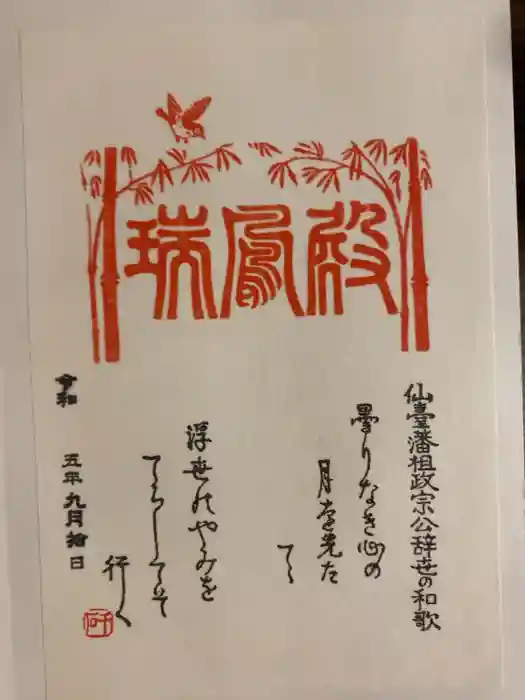 瑞鳳殿
仙臺藩祖政宗公辞世の和歌
曇りなき心の
月を先た
てゝ
浮世のやみを
てらしてこそ
行く
令和 五年 九月 拾日